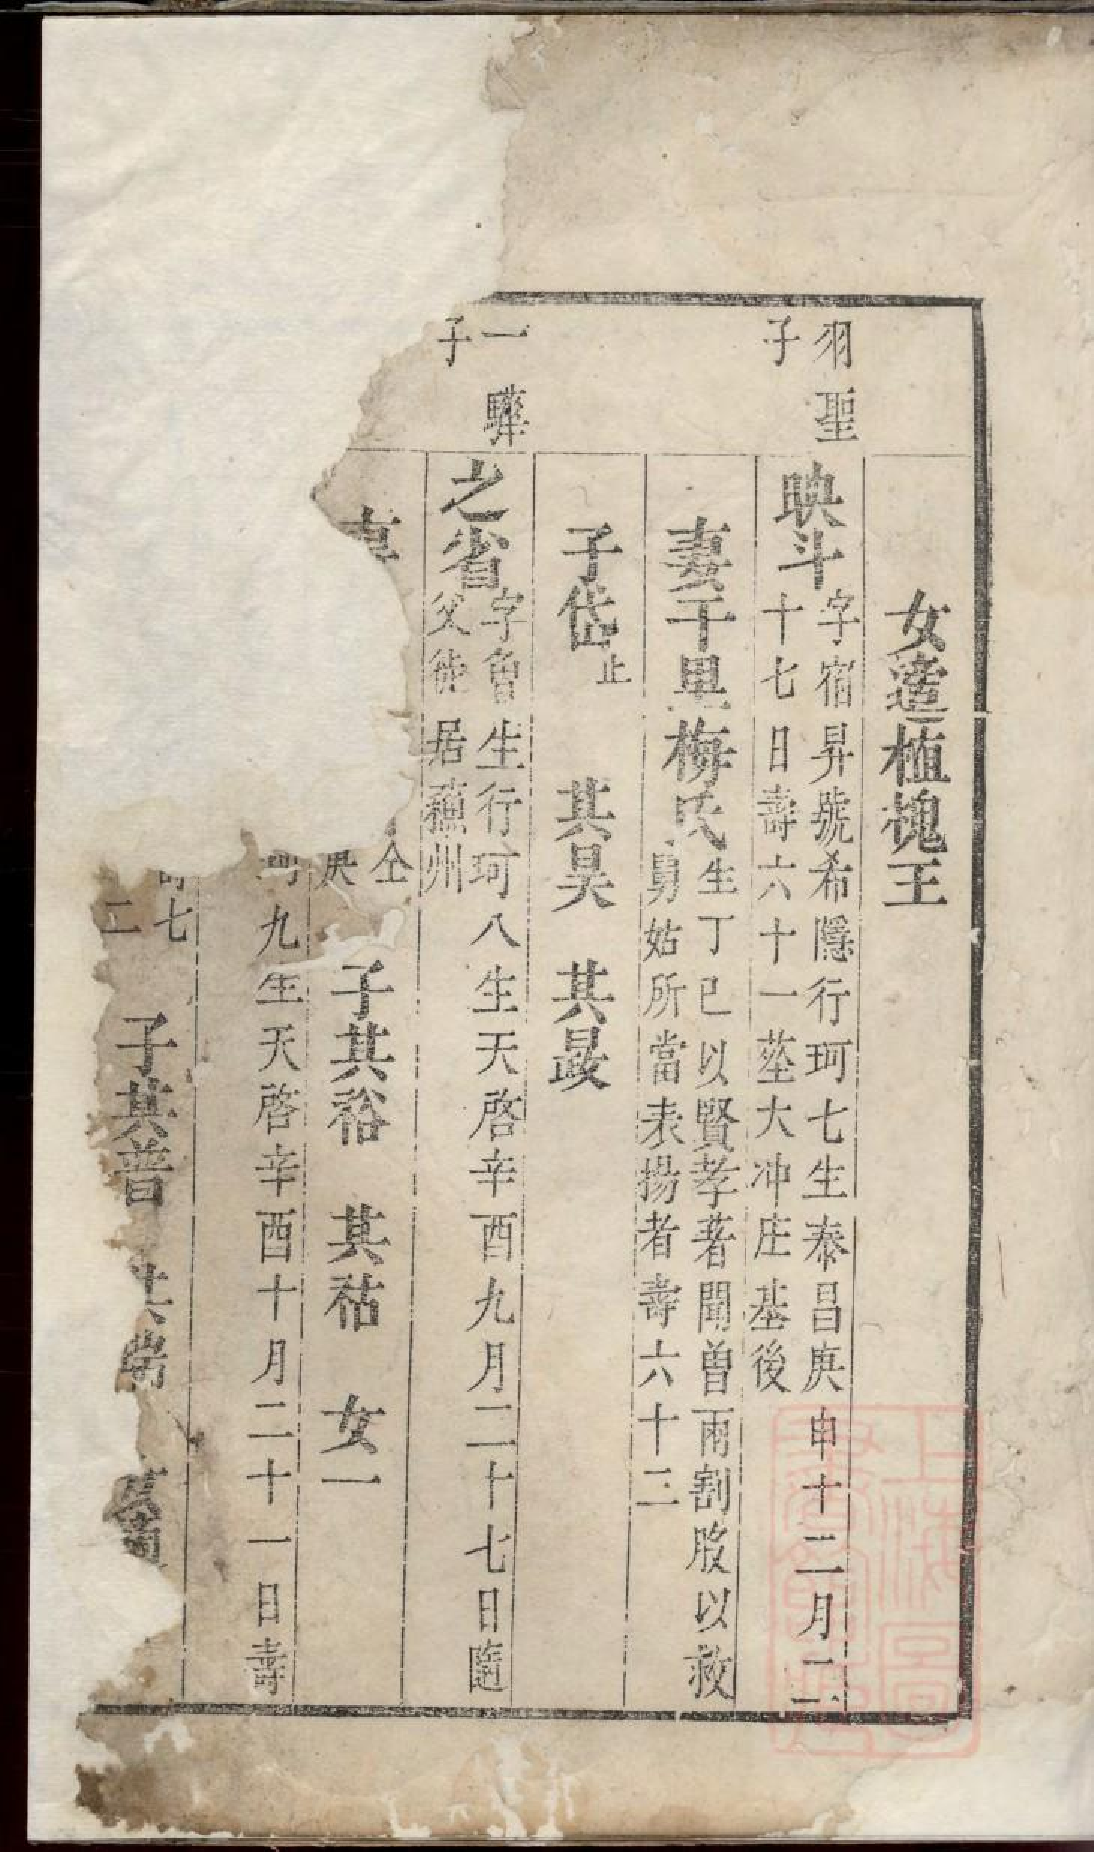 女適植槐王
羽聖子
映斗字宿昇號希隱行珂七生泰昌庚申十二月二十七日壽六十一塟大冲庄基後
妻干里梅氏生丁巳以賢孝著聞曽兩割股以救舅姑所當表揚者壽六十三
子岱止 其昊 其晸
一驊子
之省字魯生行珂八生天啓辛酉九月二十七日隨父徙居蘓州
仝 子其裕 其祜 女一
九生天啓辛酉十月二十一日壽
七二 子其普 其端